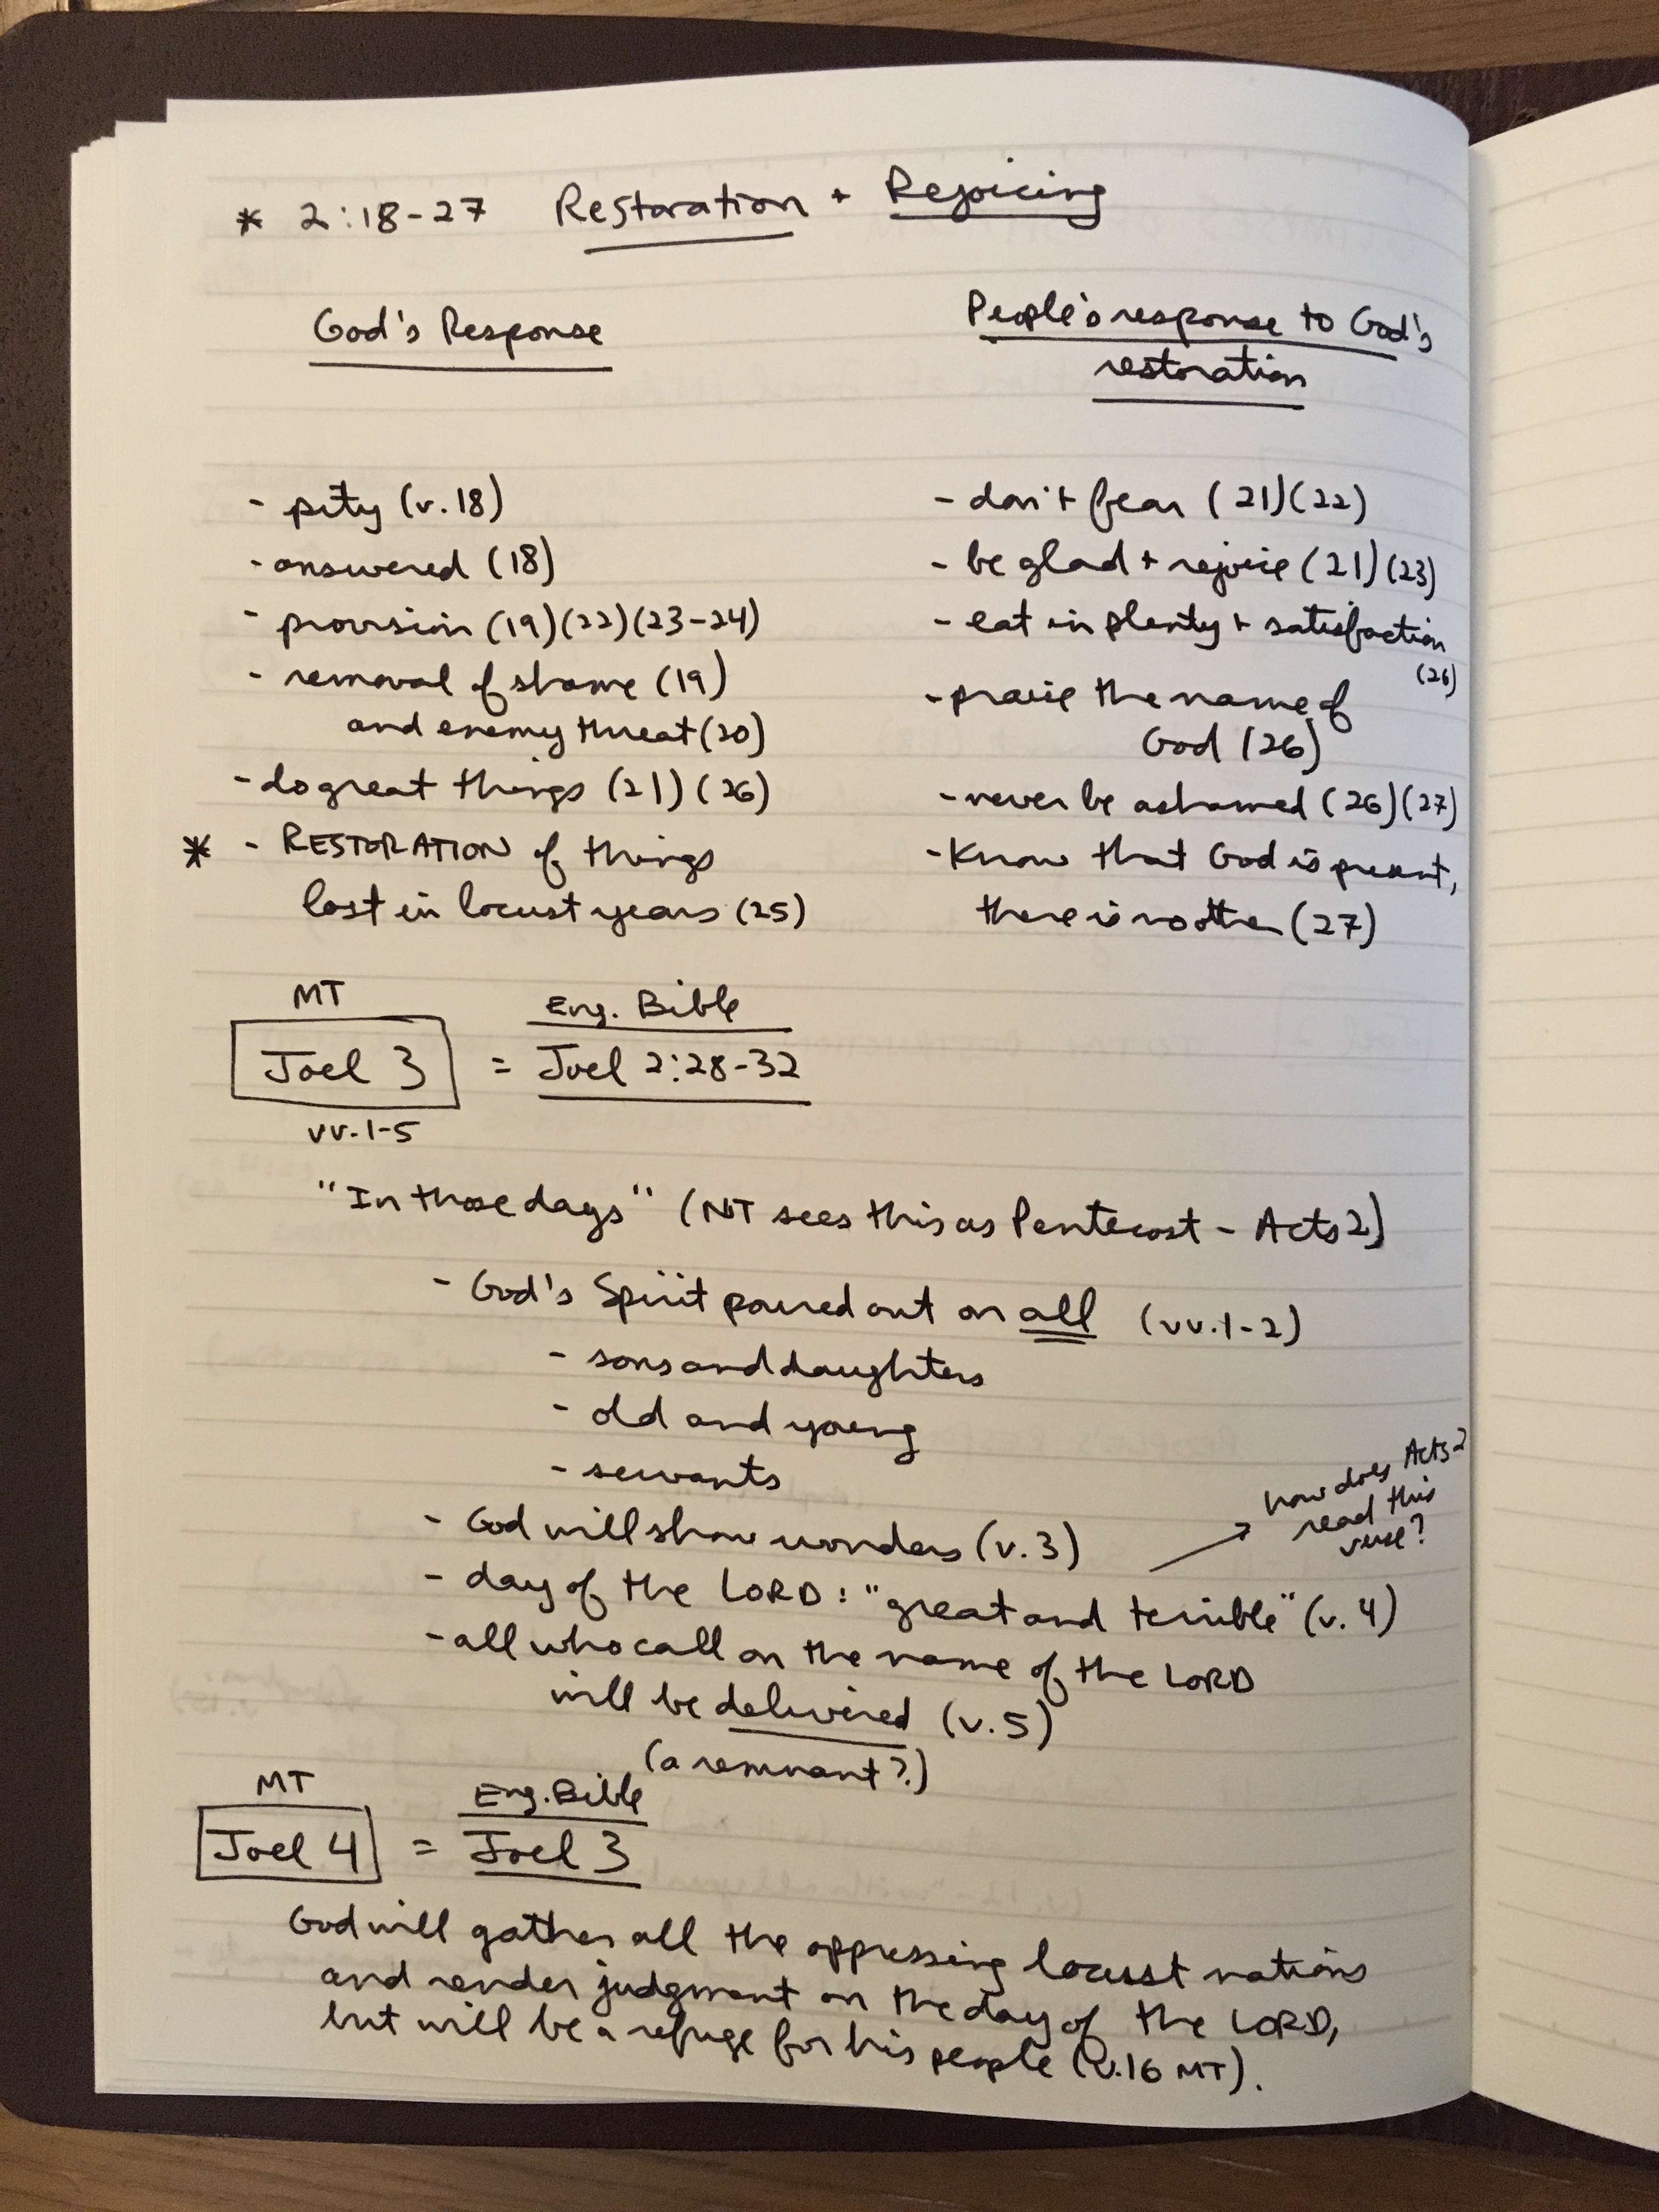 * 2:18-27 Restoration + Rejoicing
God's Response
People's response to God's
restoration
- pity (v.18)
- answered (18)
- provision (19)(22)(23-24)
- removal of shame (19)
and enemy threat (20)
- do great things (21)(26)
* - RESTORATION of things
lost in locust years (25)
- don't fear (21)(22)
- be glad + rejoice (21)(23)
- eat in plenty + satisfaction
(26)
- praise the name of
God (26)
- never be ashamed (26)(27)
- Know that God is present,
there is no other (27)
MT
Joel 3
vv. 1-5
Eng. Bible
= Joel 2:28-32
"In those days" (NT sees this as Pentecost - Acts 2)
- God's Spirit poured out on all (vv. 1-2)
- sons and daughters
- old and young
- servants
- God will show wonders (v. 3)
how does Acts 2
read this
verse?
- day of the LORD: "great and terrible" (v. 4)
- all who call on the name of the LORD
will be delivered (v. 5)
(a remnant?)
MT
Joel 4
Eng. Bible
= Joel 3
God will gather all the oppressing locusst nations
and render judgment on the day of the LORD,
but will be a refuge for his people (v. 16 MT).